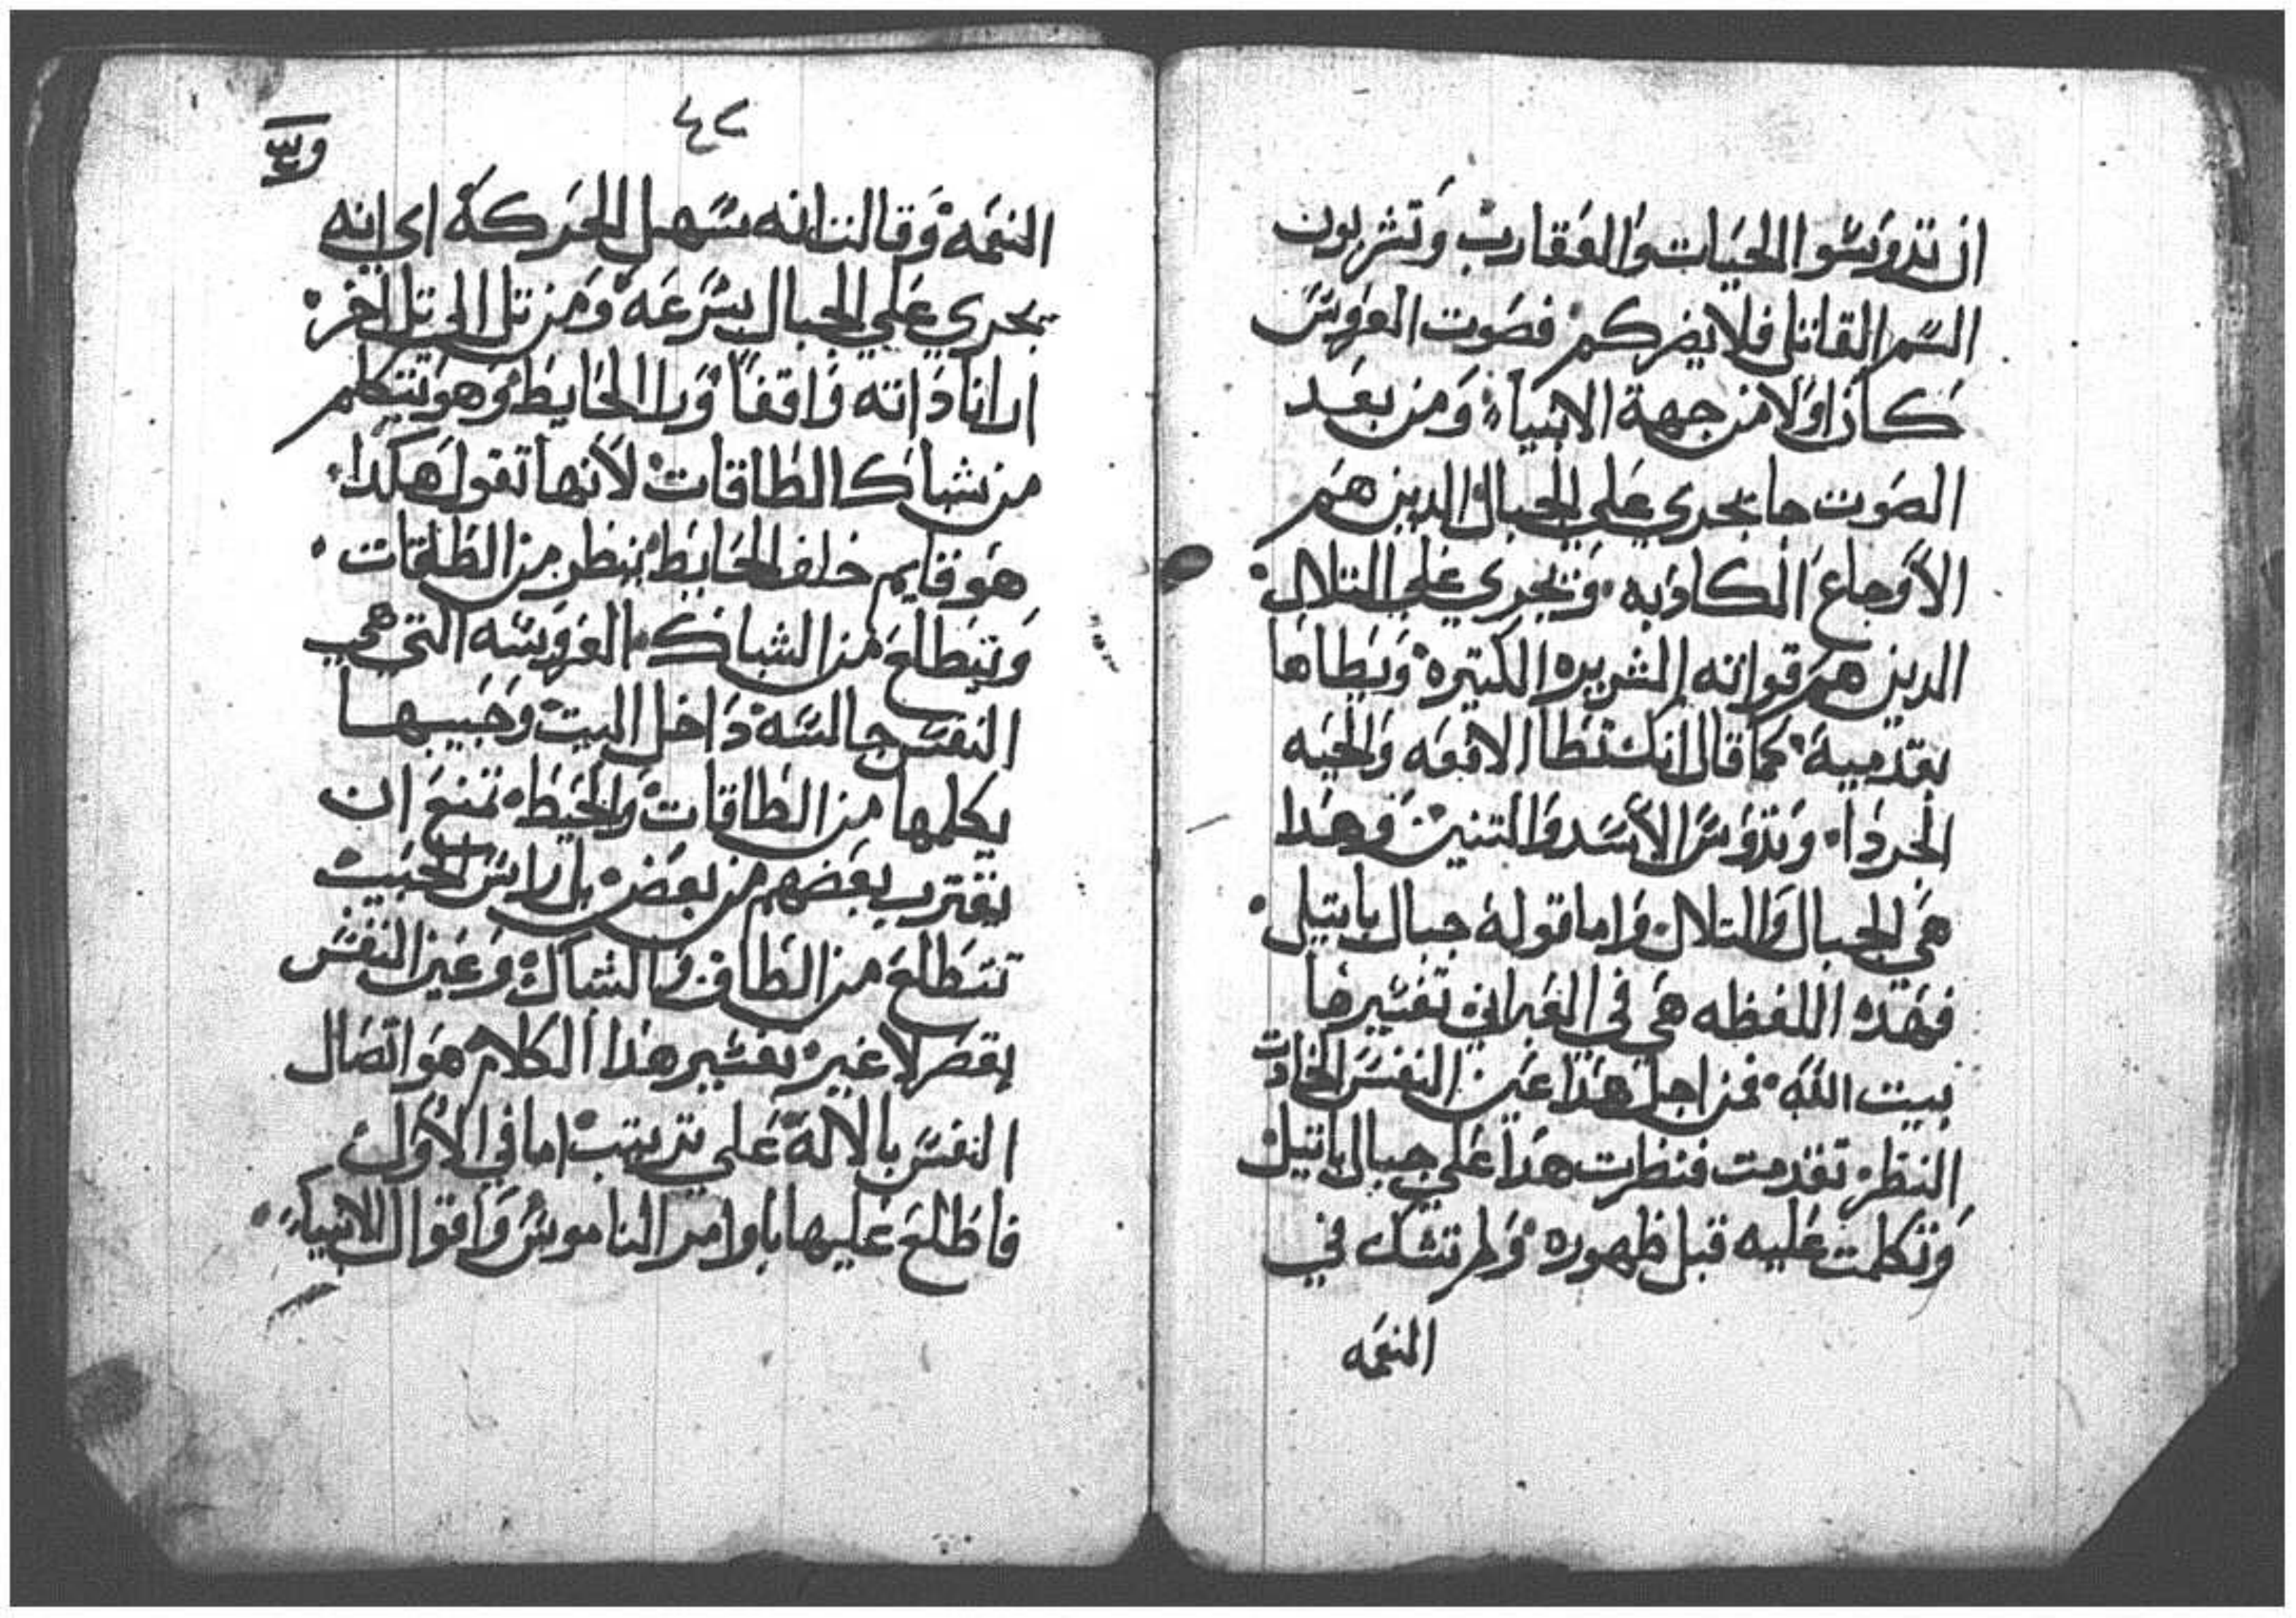 ان تدوسوا الحيات والعقارب وتشربون
السم القاتل فلا يضركم فصوت العروس
كان اولا من جهة الانبياء ومن بعد
الصوت جا يجري علي الجبال الدين هم
الاوجاع الكادبه وتجري علي التلال
الدين هم قواته الشريره الكتيره ويطاها
بقدميه كما قال انك تطا الافعه والحيه
الجردا وتدوس الاسد والتنين وهدا
هي الجبال والتلال واما قوله جبال بابتيل
فهده اللفظه هي في العبراني تفسيرها
بيت الله فمن اجل هدا عين النفس الحادت
النظر تقدمت فنظرت هدا علي جبال باتيل
وتكلمت عليه قبل ظهوره ولم تشك في
النعمه
٤٢
النعمه وقالت انه سهل الحركة اي انه
يجري علي الجبال بسرعه ومن تل الي تل اخر
ارانا داته واقفا ورا الحايط وهو يتكلم
من شباك الطاقات لانها تقول هكدا
هو قايم خلف الحايط ينظر من الطاقات
وتيطلع من الشباك العروسه التي هي
النفس جالسه داخل البيت وحبيبها
يكلمها من الطاقات والحيط تمنع ان
يقترب بعضهم من بعض بل راس الحبيب
تتطلع من الطاق والشباك وعين النفس
بقصر لا غير تفسير هدا الكلام هو اتصال
النفس بالاله علي ترتيب اما في الاول
فاطلع عليها باوامر الناموس واقوال الانبياء